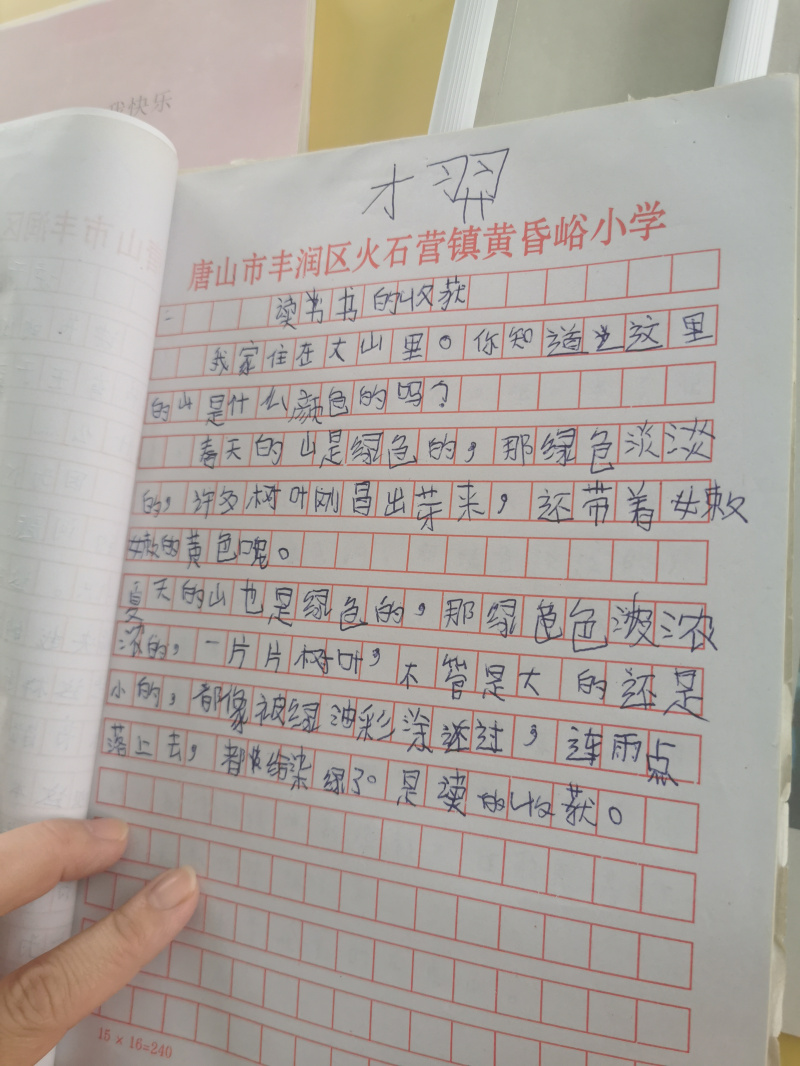 我快乐
才羿
唐山市丰润区火石营镇黄昏峪小学
读书书的收获
我家住在大山里。你知道这里
的山是什么颜色的吗？
春天的山是绿色的，那绿色淡淡
的，许多树叶刚冒出芽来，还带着嫩
嫩的黄色呢。
夏天的山也是绿色的，那绿色色浓
浓的，一片片树叶，不管是大的还是
小的，都像被绿油彩涂过，连雨点
落上去，都给染绿了。是读的收获。
15×16=240